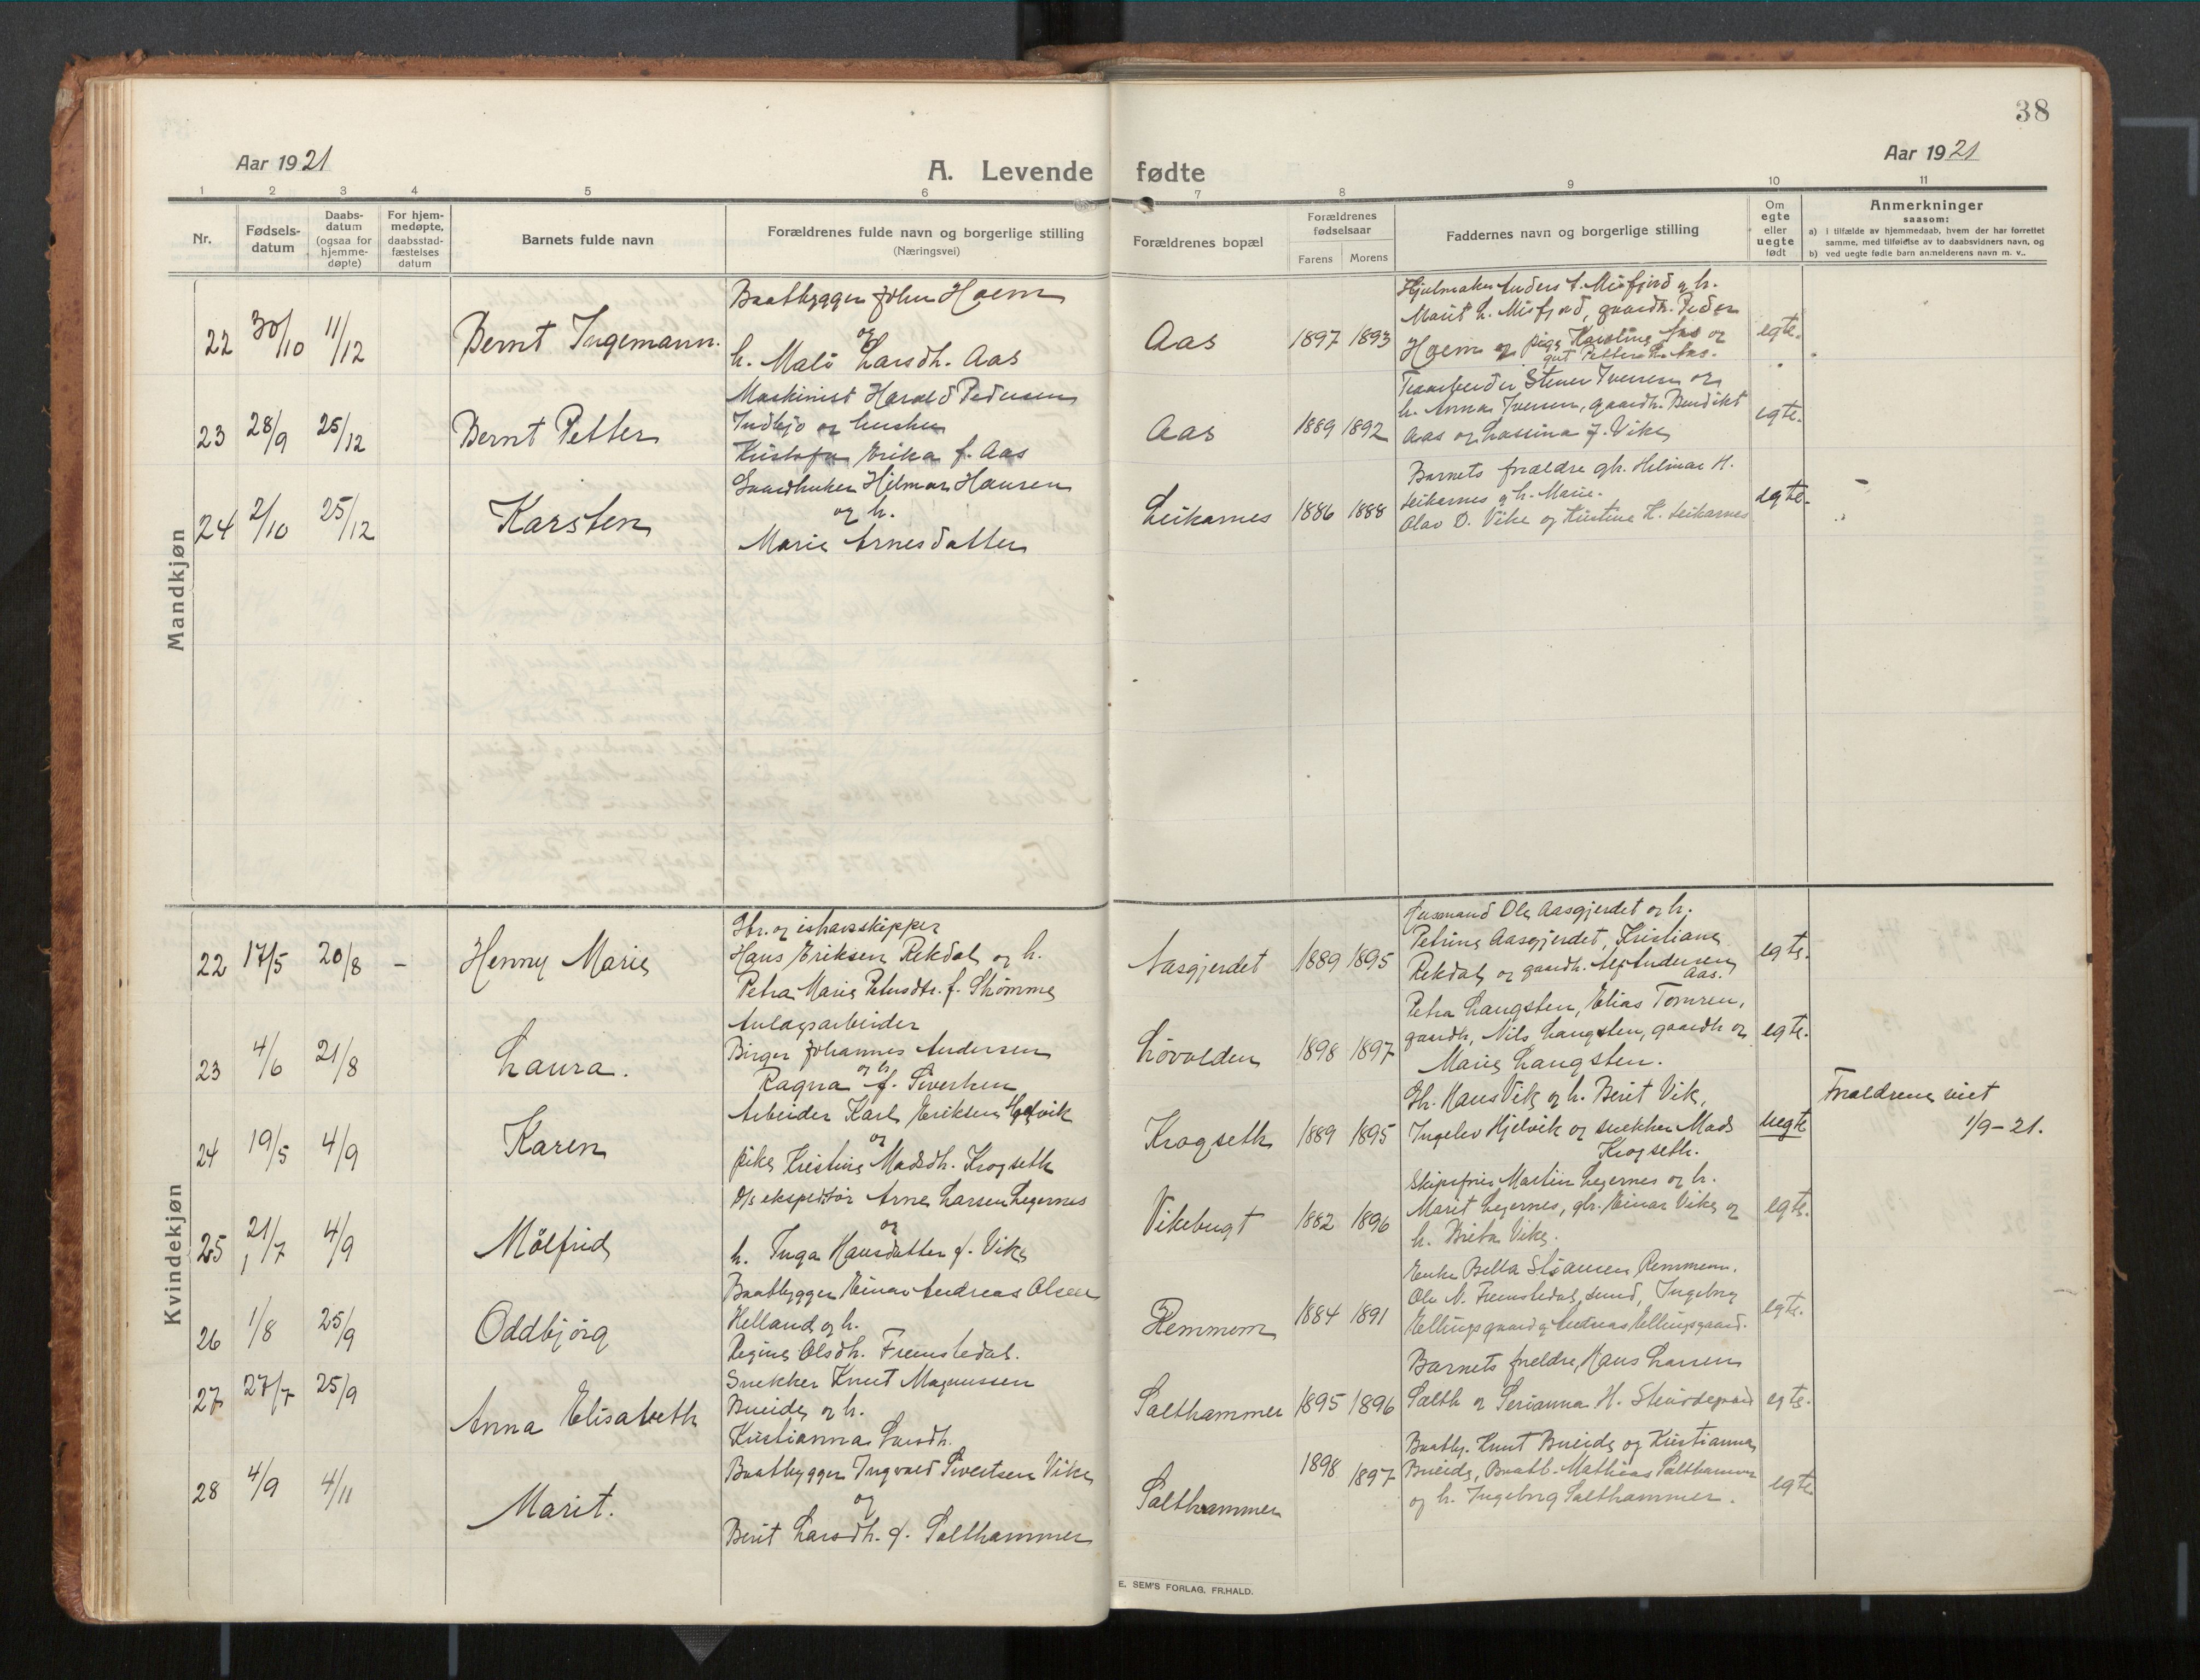 38
Aar 1921
A. Levende fødte
Aar 1921
1 2 3 4 5 6 7 8 9 10 11
Nr.
Fødsels-
datum
Daabs-
datum
(ogsaa for
hjemme-
døpte)
For hjem-
medøpte,
daabsstad-
fæstelses
datum
Barnets fulde navn
Forældrenes fulde navn og borgerlige stilling
(Næringsvei)
Forældrenes bopæl
Forældrenes
fødselsaar
Farens Morens
Faddernes navn og borgerlige stilling
Om
egte
eller
uegte
født
Anmerkninger
saasom:
a) i tilfælde av hjemmedaab, hvem der har forrettet
samme, med tilføielse av to daabsvidners navn, og
b) ved uegte fødte barn anmelderens navn m. v..
Mandkjøn
22 30/10 11/12
Bernt Ingemann.
Baatbygger John Hoem
og
h. Malö Larsdh. Aas
Aas
1897 1893
Hjulmaker Anders A. Misfjord og h.
Marit L. Misfjord, gaardh. Peder
Hoem og pige Karoline Aas og
gut Petter L. Aas.
egte.
23 28/9 25/12
Bernt Petter
Maskinist Harald Pedersen
Indbjo og hustru
Erika f. Aas
Aas
1889 1892
Stener Iversen og
h. Anna Iversen, gaardh. Bendikt
Aas og Lassina f. Vike
egte.
24 2/10 25/12
Karsten
Gaardbruker Hilmar Hansen
og h.
Marie Arnesdatter
Leikarnes
1886 1888
Barnets forældre gbr. Hilmar H.
Leikarnes og h. Marie.
Olav O. Vike og Kristine H. Leikarnes
egte.
Kvindekjøn
22 17/5 20/8 -
Henny Marie
Gbr. og ishavsskipper
Hans Eriksen Rekdal og h.
Petra Marie Petersdtr. f. Strømme
Aasgjerdet
1889 1895
Husmand Ole Aasgjerdet og h.
Petrine Aasgjerdet, Kristiane
Rekdal og gaardh. Alf Andersen
Aas.
egte.
23 4/6 21/8
Laura.
Anlægsarbeider
Birger Johannes Andersen
og h.
Ragna f. Sivertsen
Løvolden
1898 1897
Petra Langsten, Elias Tomren,
gaardh, Nils Langsten, gaardh og
Marie Langsten.
egte.
24 19/5 4/9
Karen
Arbeider Karl Eriksen Hjelvik
og
pike Kristine Madsdh. Krogseth
Krogseth
1889 1895
Gb. Hans Vik og h. Berit Vik,
Ingelev Hjelvik og snekker Mads
Krogseth.
uegte
Forældrene viet
1/9-21.
25 21/7 4/9
Målfrid
D/s ekspeditör Arne Larsen Legernes
og
h. Inga Hansdatter f. Vike
Vikebugt
1882 1896
Skipsfører Martin Legernes og h.
Marit Legernes, gbr. Einar Vike og
h. Brita Vike.
egte.
26 1/8 25/9
Oddbjörg
Baatbygger Einar Andreas Olsen
Helland og h.
Regine Olsdh. Fremstedal.
Remmem
1884 1891
Enke Bella Remmem.
Ole N. Fremstedal, Ingeborg
Ellingsgaard og Andreas Ellingsgaard.
egte.
27 27/7 25/9
Anna Elisabeth
Snekker Knut Magnussen
Bueide og h.
Kristianna Larsdh.
Salthammer
1895 1896
Barnets foreldre, Hans Larsen
Salth og Serianna H.
egte.
28 4/9 4/11
Marit.
Baatbygger Ingvald Sivertsen Vike
og
Berit Larsdh. f. Salthammer
Salthammer
1898 1897
Baatby. Knut Bueide og Kristianna
Bueide, Baatb. Mathias Salthammer
og h. Ingeborg Salthammer.
egte.
E. SEM'S FORLAG, FR.HALD.